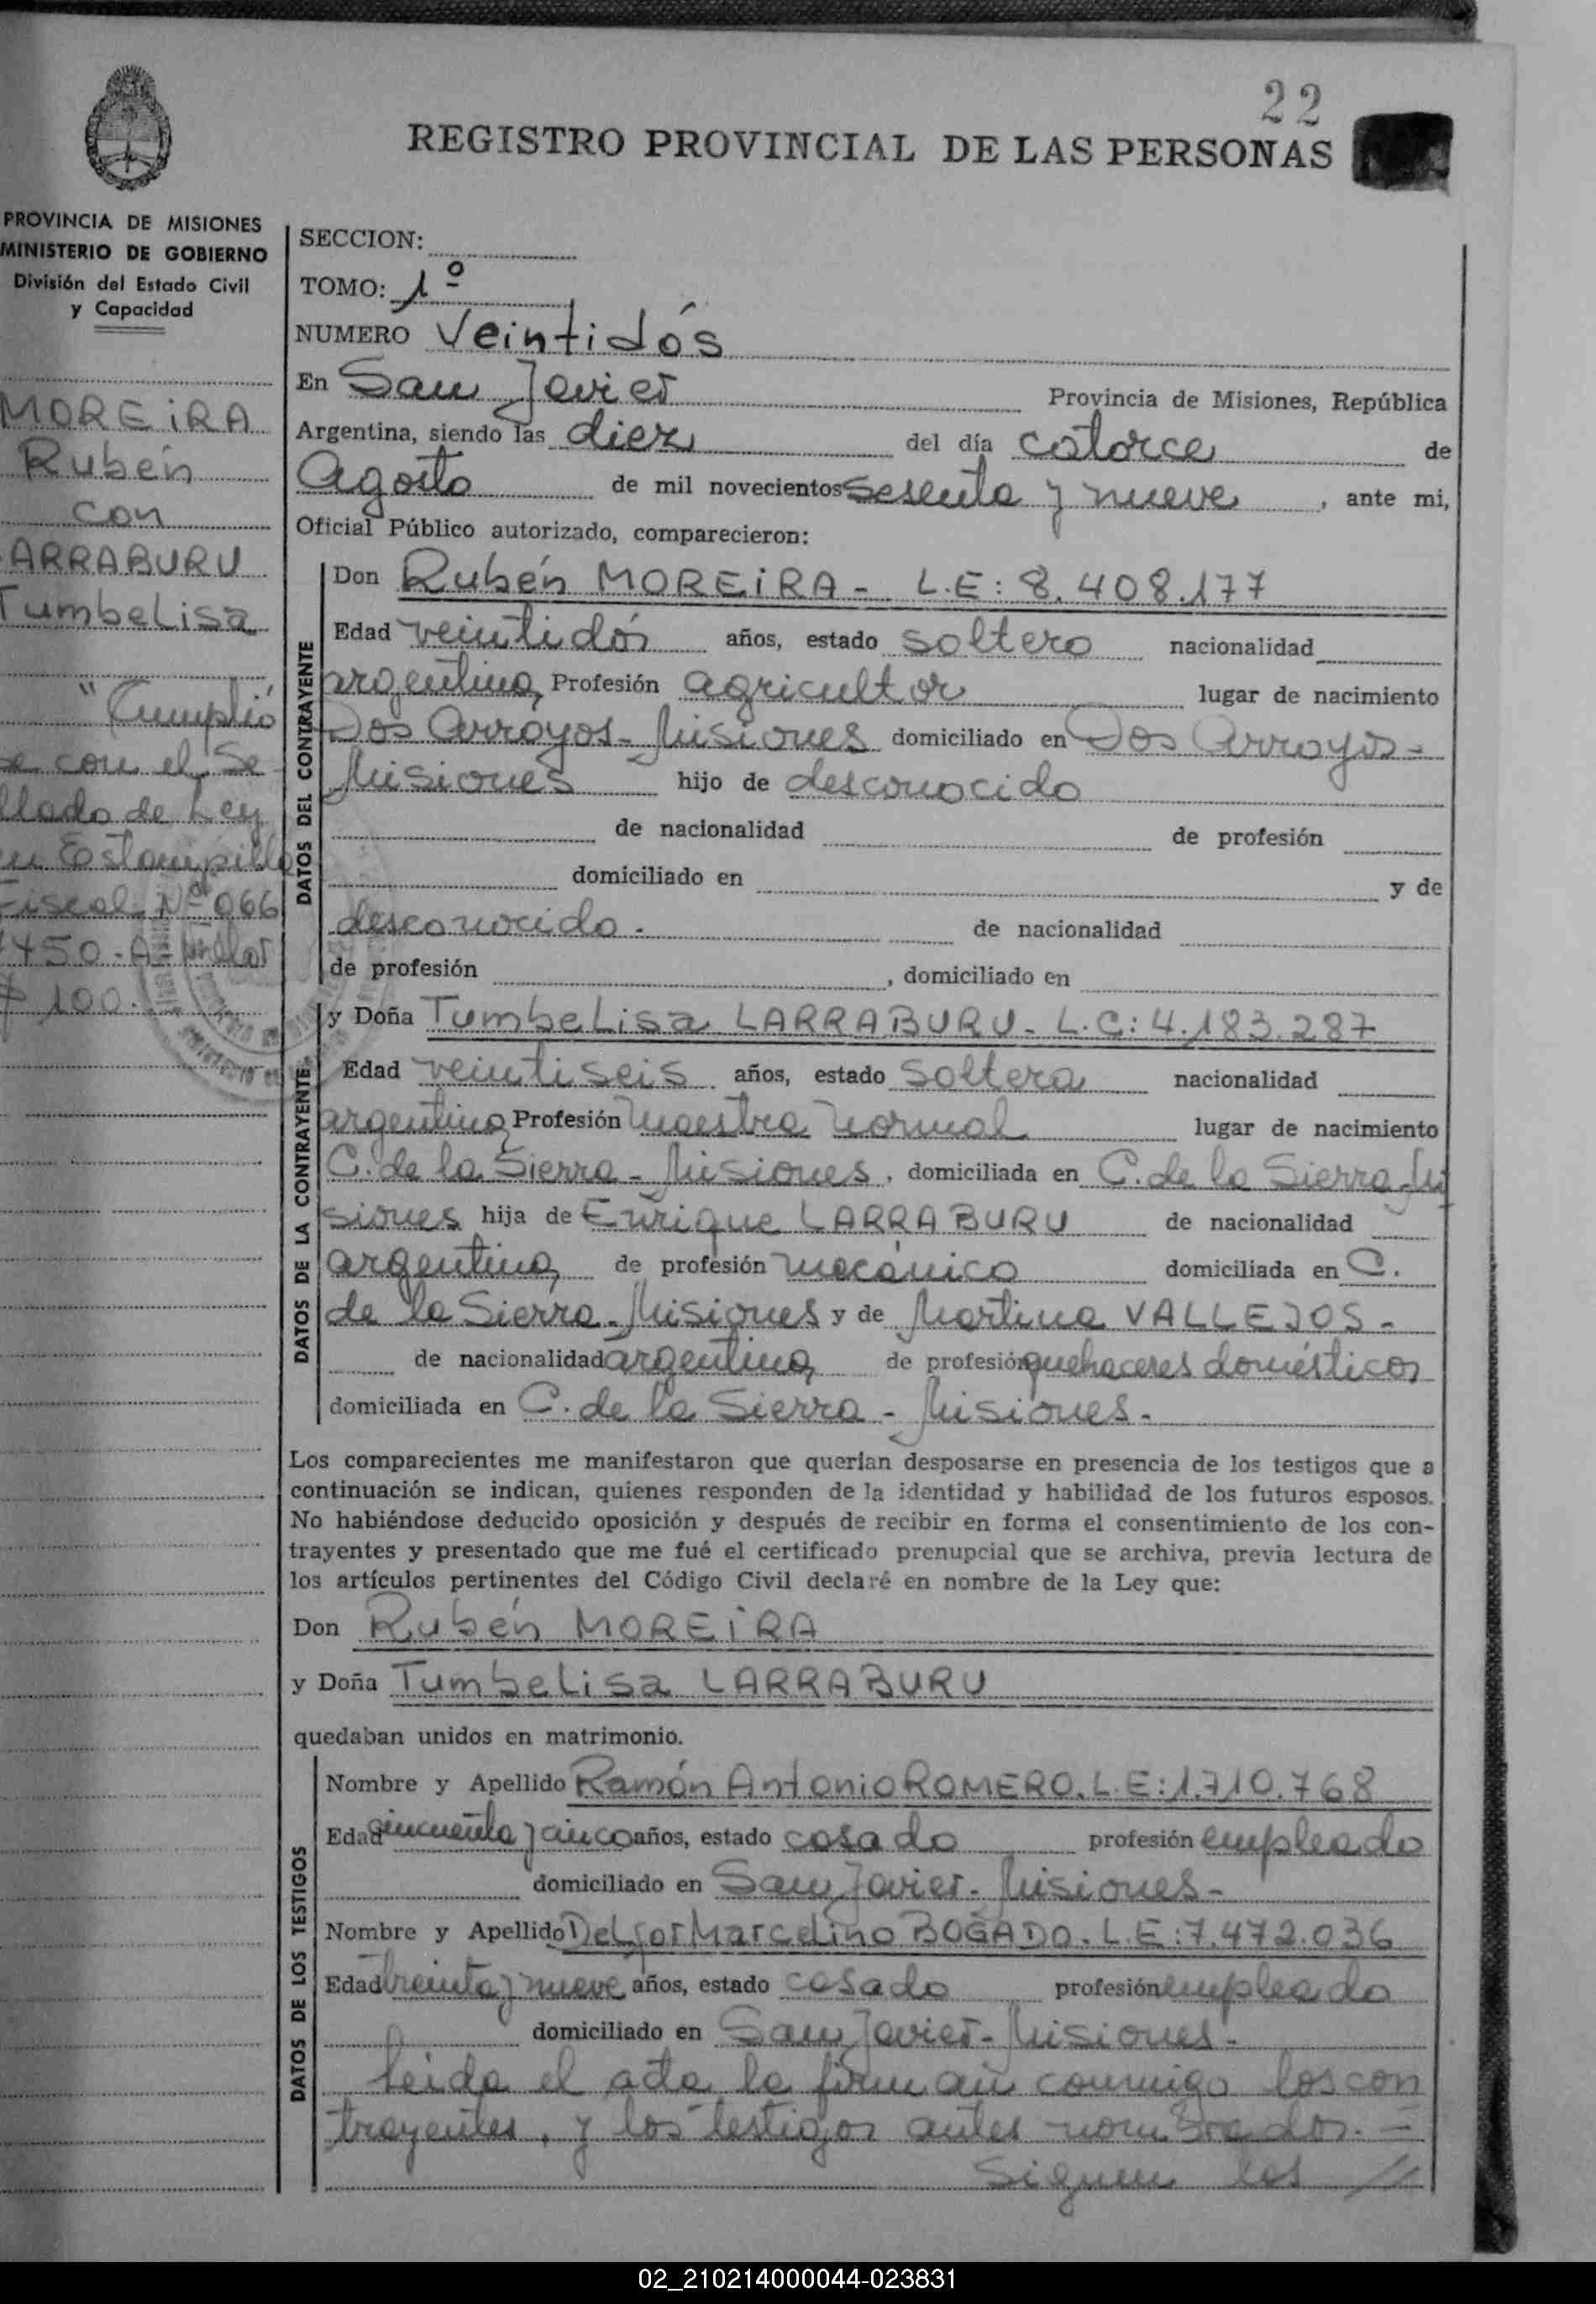 22
REGISTRO PROVINCIAL DE LAS PERSONAS
PROVINCIA DE MISIONES
MINISTERIO DE GOBIERNO
División del Estado Civil
y Capacidad
MOREIRA
Rubén
con
ARRABURU
Tumbelisa
"Cumplió
se con el Se
llado de Ley
en Estampilla
Fiscal Nº 066
450-A-
$ 100.
SECCION:
TOMO: 1º
NUMERO Veintidós
En San Javier Provincia de Misiones, República
Argentina, siendo las diez del día catorce de
Agosto de mil novecientos sesenta y nueve, ante mi,
Oficial Público autorizado, comparecieron:
DATOS DEL CONTRAYENTE
Don Rubén MOREIRA - L.E: 8.408.177
Edad veintidós años, estado soltero nacionalidad
argentina, Profesión agricultor lugar de nacimiento
Dos Arroyos - Misiones domiciliado en Dos Arroyos -
Misiones hijo de desconocido
de nacionalidad de profesión
domiciliado en y de
desconocida. de nacionalidad
de profesión , domiciliado en
DATOS DE LA CONTRAYENTE
y Doña Tumbelisa LARRABURU - L.C: 4.183.287
Edad veintiseis años, estado soltera nacionalidad
argentina Profesión Maestra Normal lugar de nacimiento
C. de la Sierra - Misiones, domiciliada en C. de la Sierra Mi
siones hija de Enrique LARRABURU de nacionalidad
argentina, de profesión mecánico domiciliada en C.
de la Sierra - Misiones y de Martina VALLEJOS -
de nacionalidad argentina, de profesión quehaceres domésticos
domiciliada en C. de la Sierra - Misiones -
Los comparecientes me manifestaron que querían desposarse en presencia de los testigos que a
continuación se indican, quienes responden de la identidad y habilidad de los futuros esposos.
No habiéndose deducido oposición y después de recibir en forma el consentimiento de los con-
trayentes y presentado que me fué el certificado prenupcial que se archiva, previa lectura de
los artículos pertinentes del Código Civil declaré en nombre de la Ley que:
Don Rubén MOREIRA
y Doña Tumbelisa LARRABURU
quedaban unidos en matrimonio.
DATOS DE LOS TESTIGOS
Nombre y Apellido Ramón Antonio ROMERO. L.E: 1.710.768
Edad cincuenta y cinco años, estado casado profesión empleado
domiciliado en San Javier - Misiones -
Nombre y Apellido Delfor Marcelino BOGADO. L.E: 7.472.036
Edad treinta y nueve años, estado casado profesión empleado
domiciliado en San Javier - Misiones -
Leida el acta la firman conmigo los con
trayentes, y los testigos antes nombrados. =
Siguen las //
02_210214000044-023831